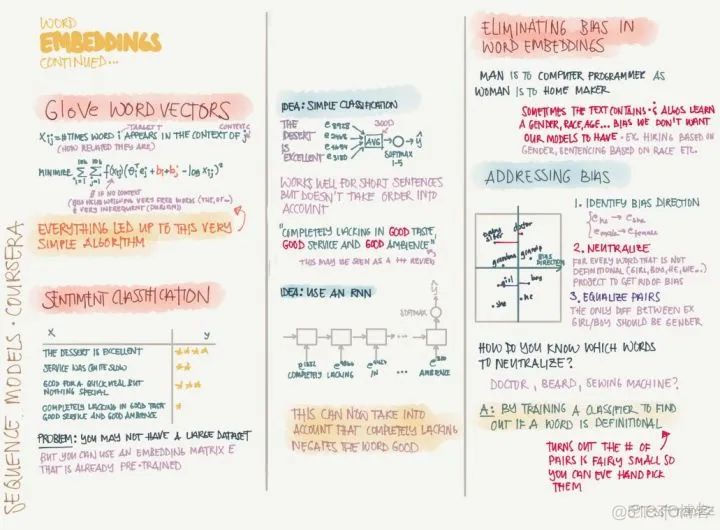 WORD
EMBEDDINGS
CONTINUED...
GloVe WORD VECTORS
Xij = # TIMES WORD i APPEARS IN THE CONTEXT OF j
TARGET t
CONTEXT c
(HOW RELATED THEY ARE)
MINIMIZE Σ Σ f(Xij) (θiᵀ ej + bi + bj' - log Xij)²
10k
10k
i=1
j=1
0 IF NO CONTEXT
EVERYTHING LED UP TO THIS VERY
SIMPLE ALGORITHM
SENTIMENT CLASSIFICATION
X
y
THE DESSERT IS EXCELLENT
★★★★
SERVICE WAS QUITE SLOW
★★
GOOD FOR A QUICK MEAL BUT
NOTHING SPECIAL
COMPLETELY LACKING IN GOOD TASTE
GOOD SERVICE AND GOOD AMBIENCE
★
PROBLEM: YOU MAY NOT HAVE A LARGE DATASET
BUT YOU CAN USE AN EMBEDDING MATRIX E
THAT IS ALREADY PRE-TRAINED
SEQUENCE MODELS · COURSERA
IDEA: SIMPLE CLASSIFICATION
THE
DESSERT
IS
EXCELLENT
e8928
e2468
e4694
e3180
300D
AVG
ŷ
SOFTMAX
1-5
WORKS WELL FOR SHORT SENTENCES
BUT DOESN'T TAKE ORDER INTO
ACCOUNT
"COMPLETELY LACKING IN GOOD TASTE,
GOOD SERVICE AND GOOD AMBIENCE"
THIS MAY BE SEEN AS A +++ REVIEW
IDEA: USE AN RNN
ŷ
SOFTMAX
e1852
e4966
e4427
...
e330
COMPLETELY
LACKING
IN
...
AMBIENCE
THIS CAN NOW TAKE INTO
ACCOUNT THAT COMPLETELY LACKING
NEGATES THE WORD GOOD
ELIMINATING BIAS IN
WORD EMBEDDINGS
MAN IS TO COMPUTER PROGRAMMER AS
WOMAN IS TO HOME MAKER
SOMETIMES THE TEXT CONTAINS & ALGOS LEARN
A GENDER, RACE, AGE... BIAS WE DON'T WANT
OUR MODELS TO HAVE · EX. HIRING BASED ON
GENDER, SENTENCING BASED ON RACE ETC.
ADDRESSING BIAS
baby
sitter
doctor
grandma
grandpa
BIAS
DIRECTION
girl
boy
she
he
1. IDENTIFY BIAS DIRECTION
ehe → eshe
emale → efemale
2. NEUTRALIZE
FOR EVERY WORD THAT IS NOT
DEFINITIONAL (GIRL, BOY, HE, WE...)
PROJECT TO GET RID OF BIAS
3. EQUALIZE PAIRS
THE ONLY DIFF BETWEEN EX
GIRL/BOY SHOULD BE GENDER
HOW DO YOU KNOW WHICH WORDS
TO NEUTRALIZE?
DOCTOR, BEARD, SEWING MACHINE?
A: BY TRAINING A CLASSIFIER TO FIND
OUT IF A WORD IS DEFINITIONAL
TURNS OUT THE # OF
PAIRS IS FAIRLY SMALL SO
YOU CAN EVE HAND PICK
THEM